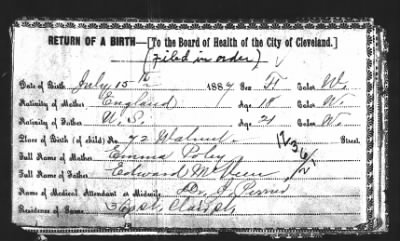 RETURN OF A BIRTH—[To the Board of Health of the City of Cleveland.]
(Filed in order)
Date of Birth July 15th 1887 Sex F. Color W.
Nativity of Mother England Age 18 Color W.
Nativity of Father U.S. Age 21 Color W.
Place of Birth (of child) No 72 Walnut. Street.
Full Name of Mother Emma Poley
Full Name of Father Edward
Name of Medical Attendant or Midwife Dr.
Residence of Same St. Clair St.